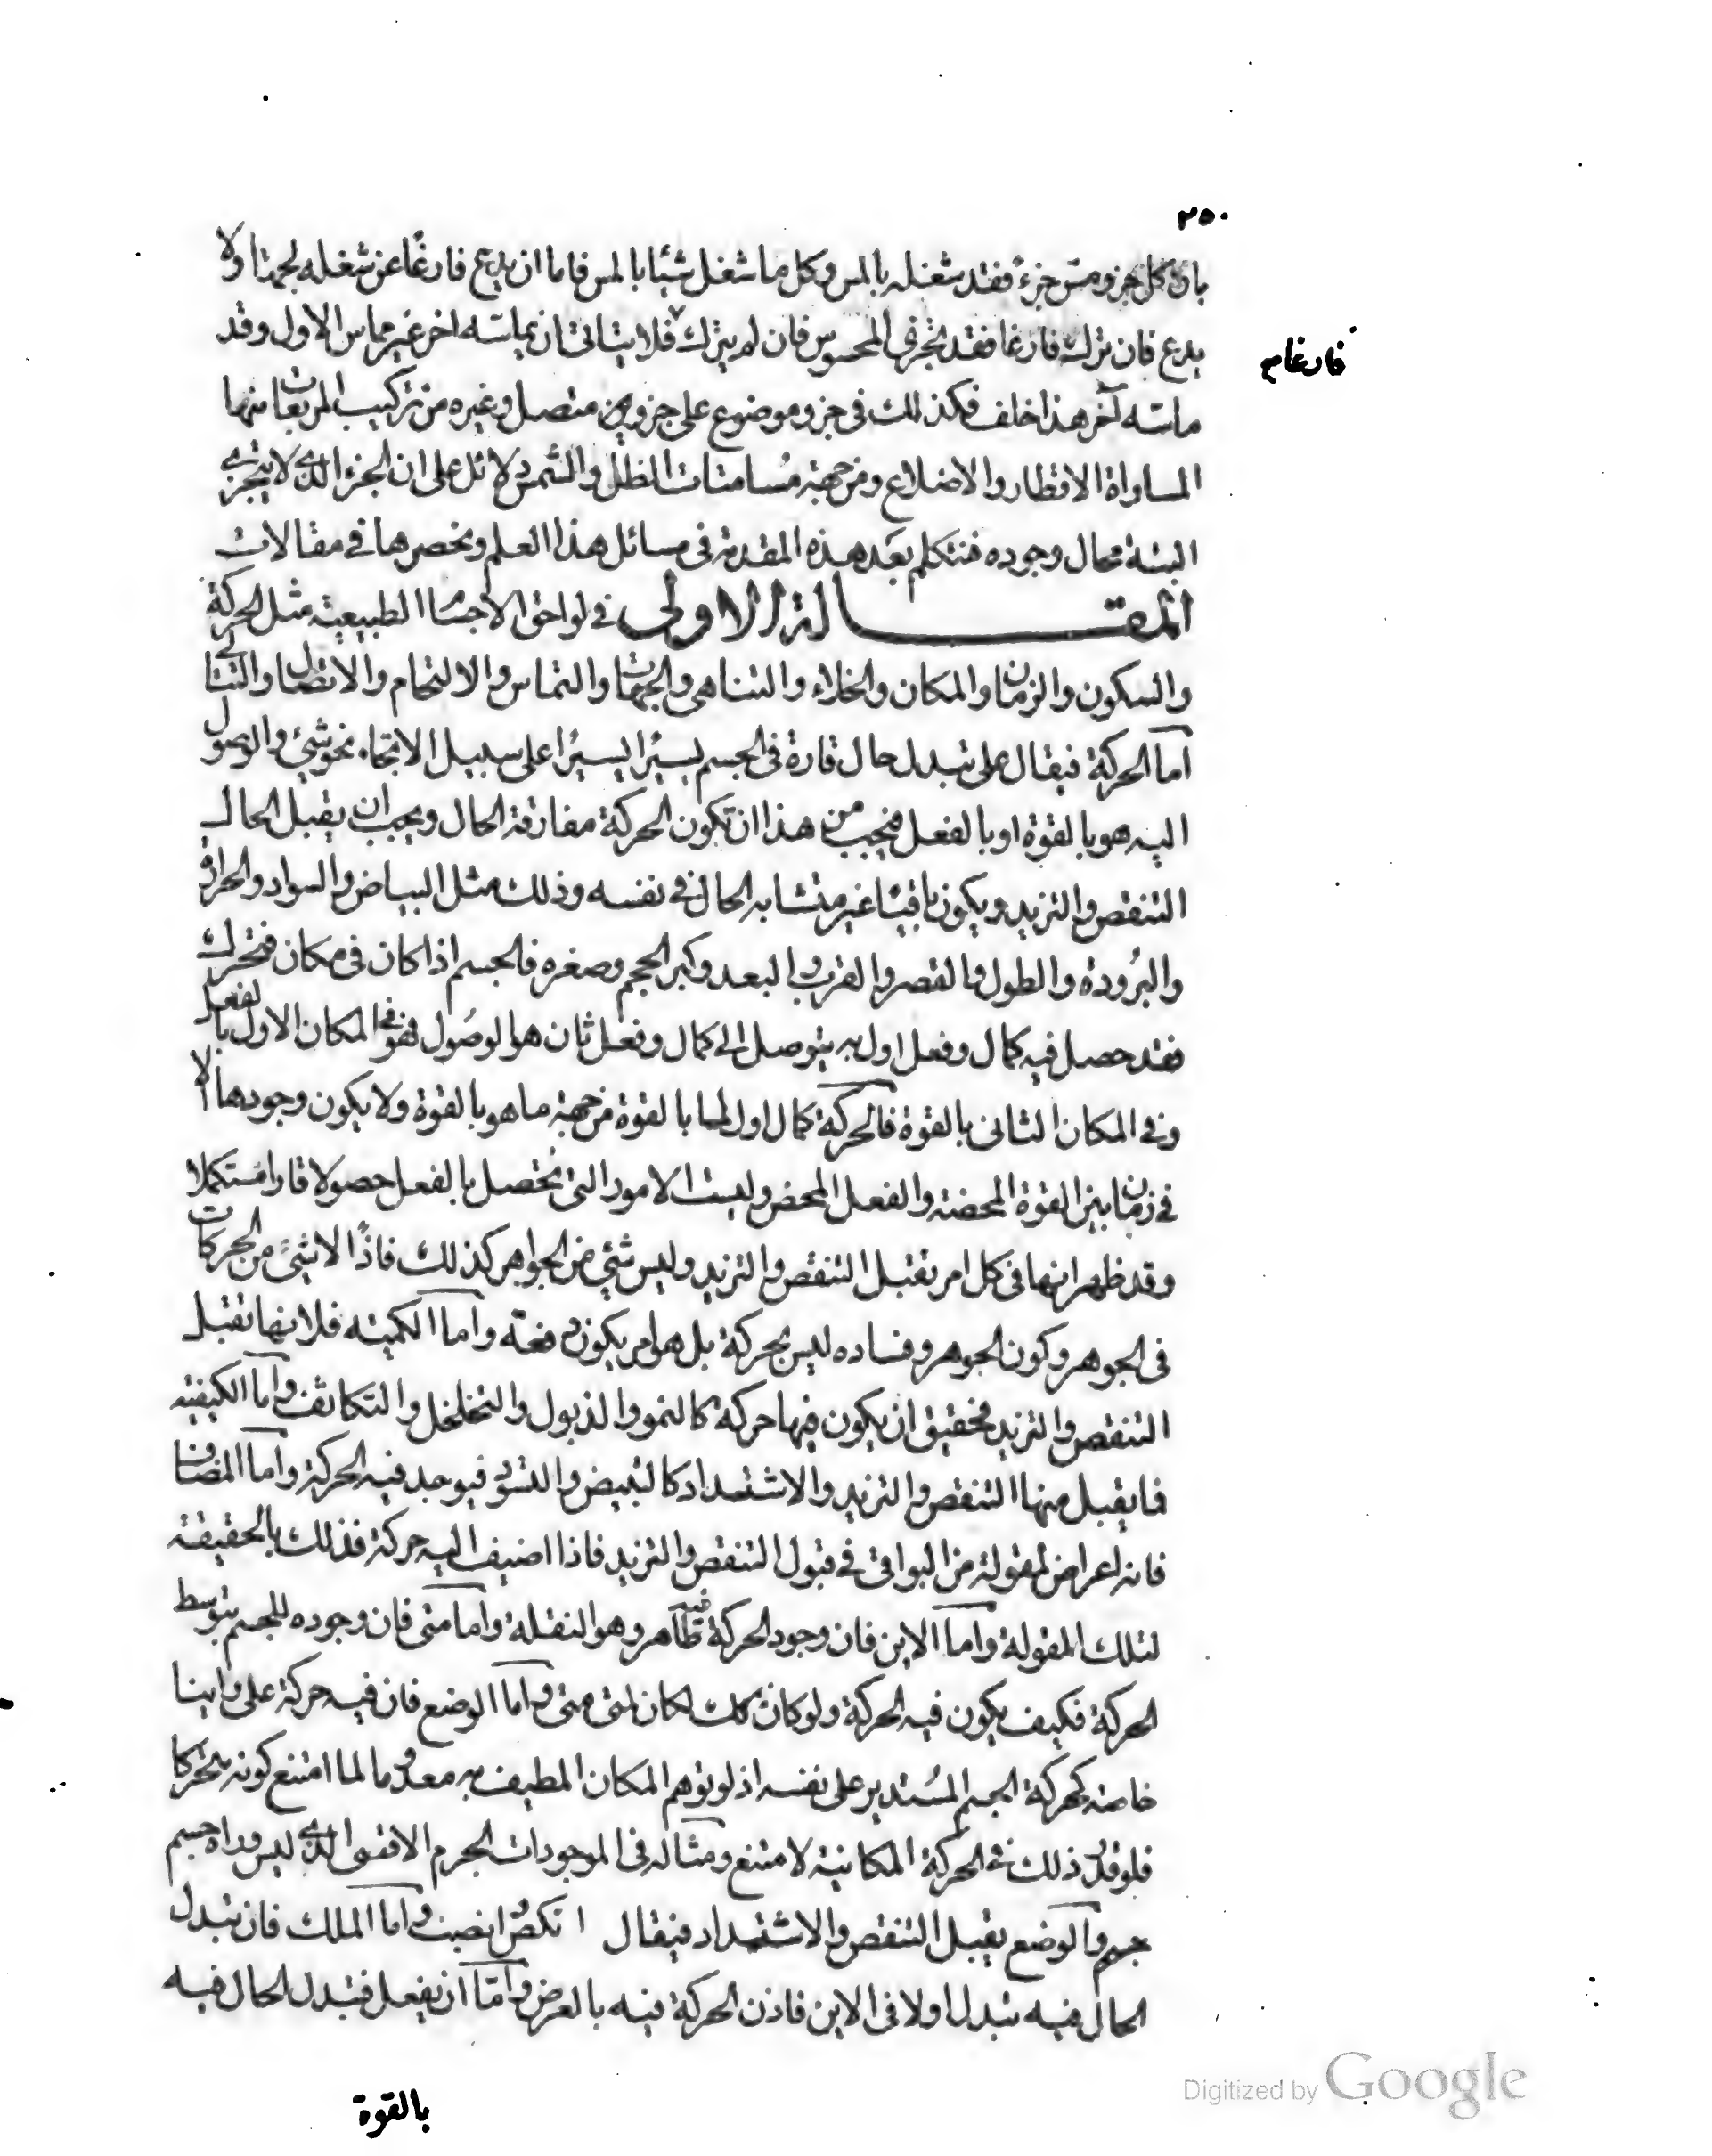 ٣٥٠
بان كل جزو مس جزءً فقد شغله بالمس وكل ما شغل شيئا بالمس فاما ان يدع فارغًا عن شغله لجهتا ولا
يدع فان ترك فارغا فقد تجزى المحسوس فان لم يترك فلا يتاتى ان يماسّه اخر غير مماس الاول وقد
فارغا م
ماسّه آخر هذا خلف فكذلك في جزو موضوع على جزوين متصل وغيره من تركيب المربعات منها
المساواة الاقطار والاضلاع ومن جهة مُسامتات الظل والشمس دلائل على ان الجزء الذي لا يتجزى
البتة محال وجوده فنتكلم بعَد هذه المقدمة في مسائل هذا العلم ونحصرها في مقالات
المقالة الاولى في لواحق الاجسام الطبيعية مثل الحركة
والسكون والزمان والمكان والخلاء والتناهي والجهات والتماس والالتحام والاتصال والتتالي
اما الحركة فيقال على تبدل حال قارة في الجسم يسيرًا يسيرًا على سبيل الاتجاه نحو شئ والوصول
اليه هو بالقوة او بالفعل فيجب من هذا ان تكون الحركة مفارقة الحال ويجب ان يقبل الحال
التنقص والتزيد ويكون باقيًا غير متشابه الحال في نفسه وذلك مثل البياض والسواد والحرارة
والبُرودة والطول والقصر والقرب والبعد وكبر الحجم وصغره فالجسم اذا كان في مكان فتحرك
فقد حصل فيه كمال وفعل اول به يتوصل الى كمال وفعل ثان هو الوصُول فهو في المكان الاول بالفعل
وفي المكان الثاني بالقوة فالحركة كمال اول لما بالقوة من جهة ما هو بالقوة ولا يكون وجودها الا
في زمان بين القوة المحضة والفعل المحض وليست الامور التي تحصل بالفعل حصولا قارا مُستكملا
وقد ظهر انها في كل امر تقبل التنقص والتزيد وليس شئ من الجواهر كذلك فاذًا لا شئ من الحركات
في الجوهر وكون الجوهر وفساده ليس بحركة بل هو امر يكون دفعة واما الكمية فلانها تقبل
التنقص والتزيد فخقيق ان يكون فيها حركة كالنمو والذبول والتخلخل والتكاثف واما الكيفية
فما يقبل منها التنقص والتزيد والاشتداد كالتبيض والتسود فيوجد فيه الحركة واما المضاف
فانه لعارض لمقولة من البواقي في قبول التنقص والتزيد فاذا اضيف اليه حركة فذلك بالحقيقة
لتلك المقولة واما الاين فان وجود الحركة فيه ظاهر وهو النقلة واما متى فان وجوده للجسم بتوسط
الحركة فكيف يكون فيه الحركة ولو كان كذلك لكان لمتى متى واما الوضع فان فيه حركة على راينا
خاصة كحركة الجسم المُستدير على نفسه اذ لو توهم المكان المطيف به معدوما لما امتنع كونه متحركا
فلو قدر ذلك في الحركة المكانية لامتنع ومثاله في الموجودات الجرم الاقصى الذي ليس وراه جسم
جسم والوضع يقبل التنقص والاشتداد فيقال انكص وانصب واما الملك فان تبدل
الحال فيه تبدل اولا في الاين فاذن الحركة فيه بالعرض واما ان يفعل فتبدل الحال فيه
بالقوة
Digitized by Google